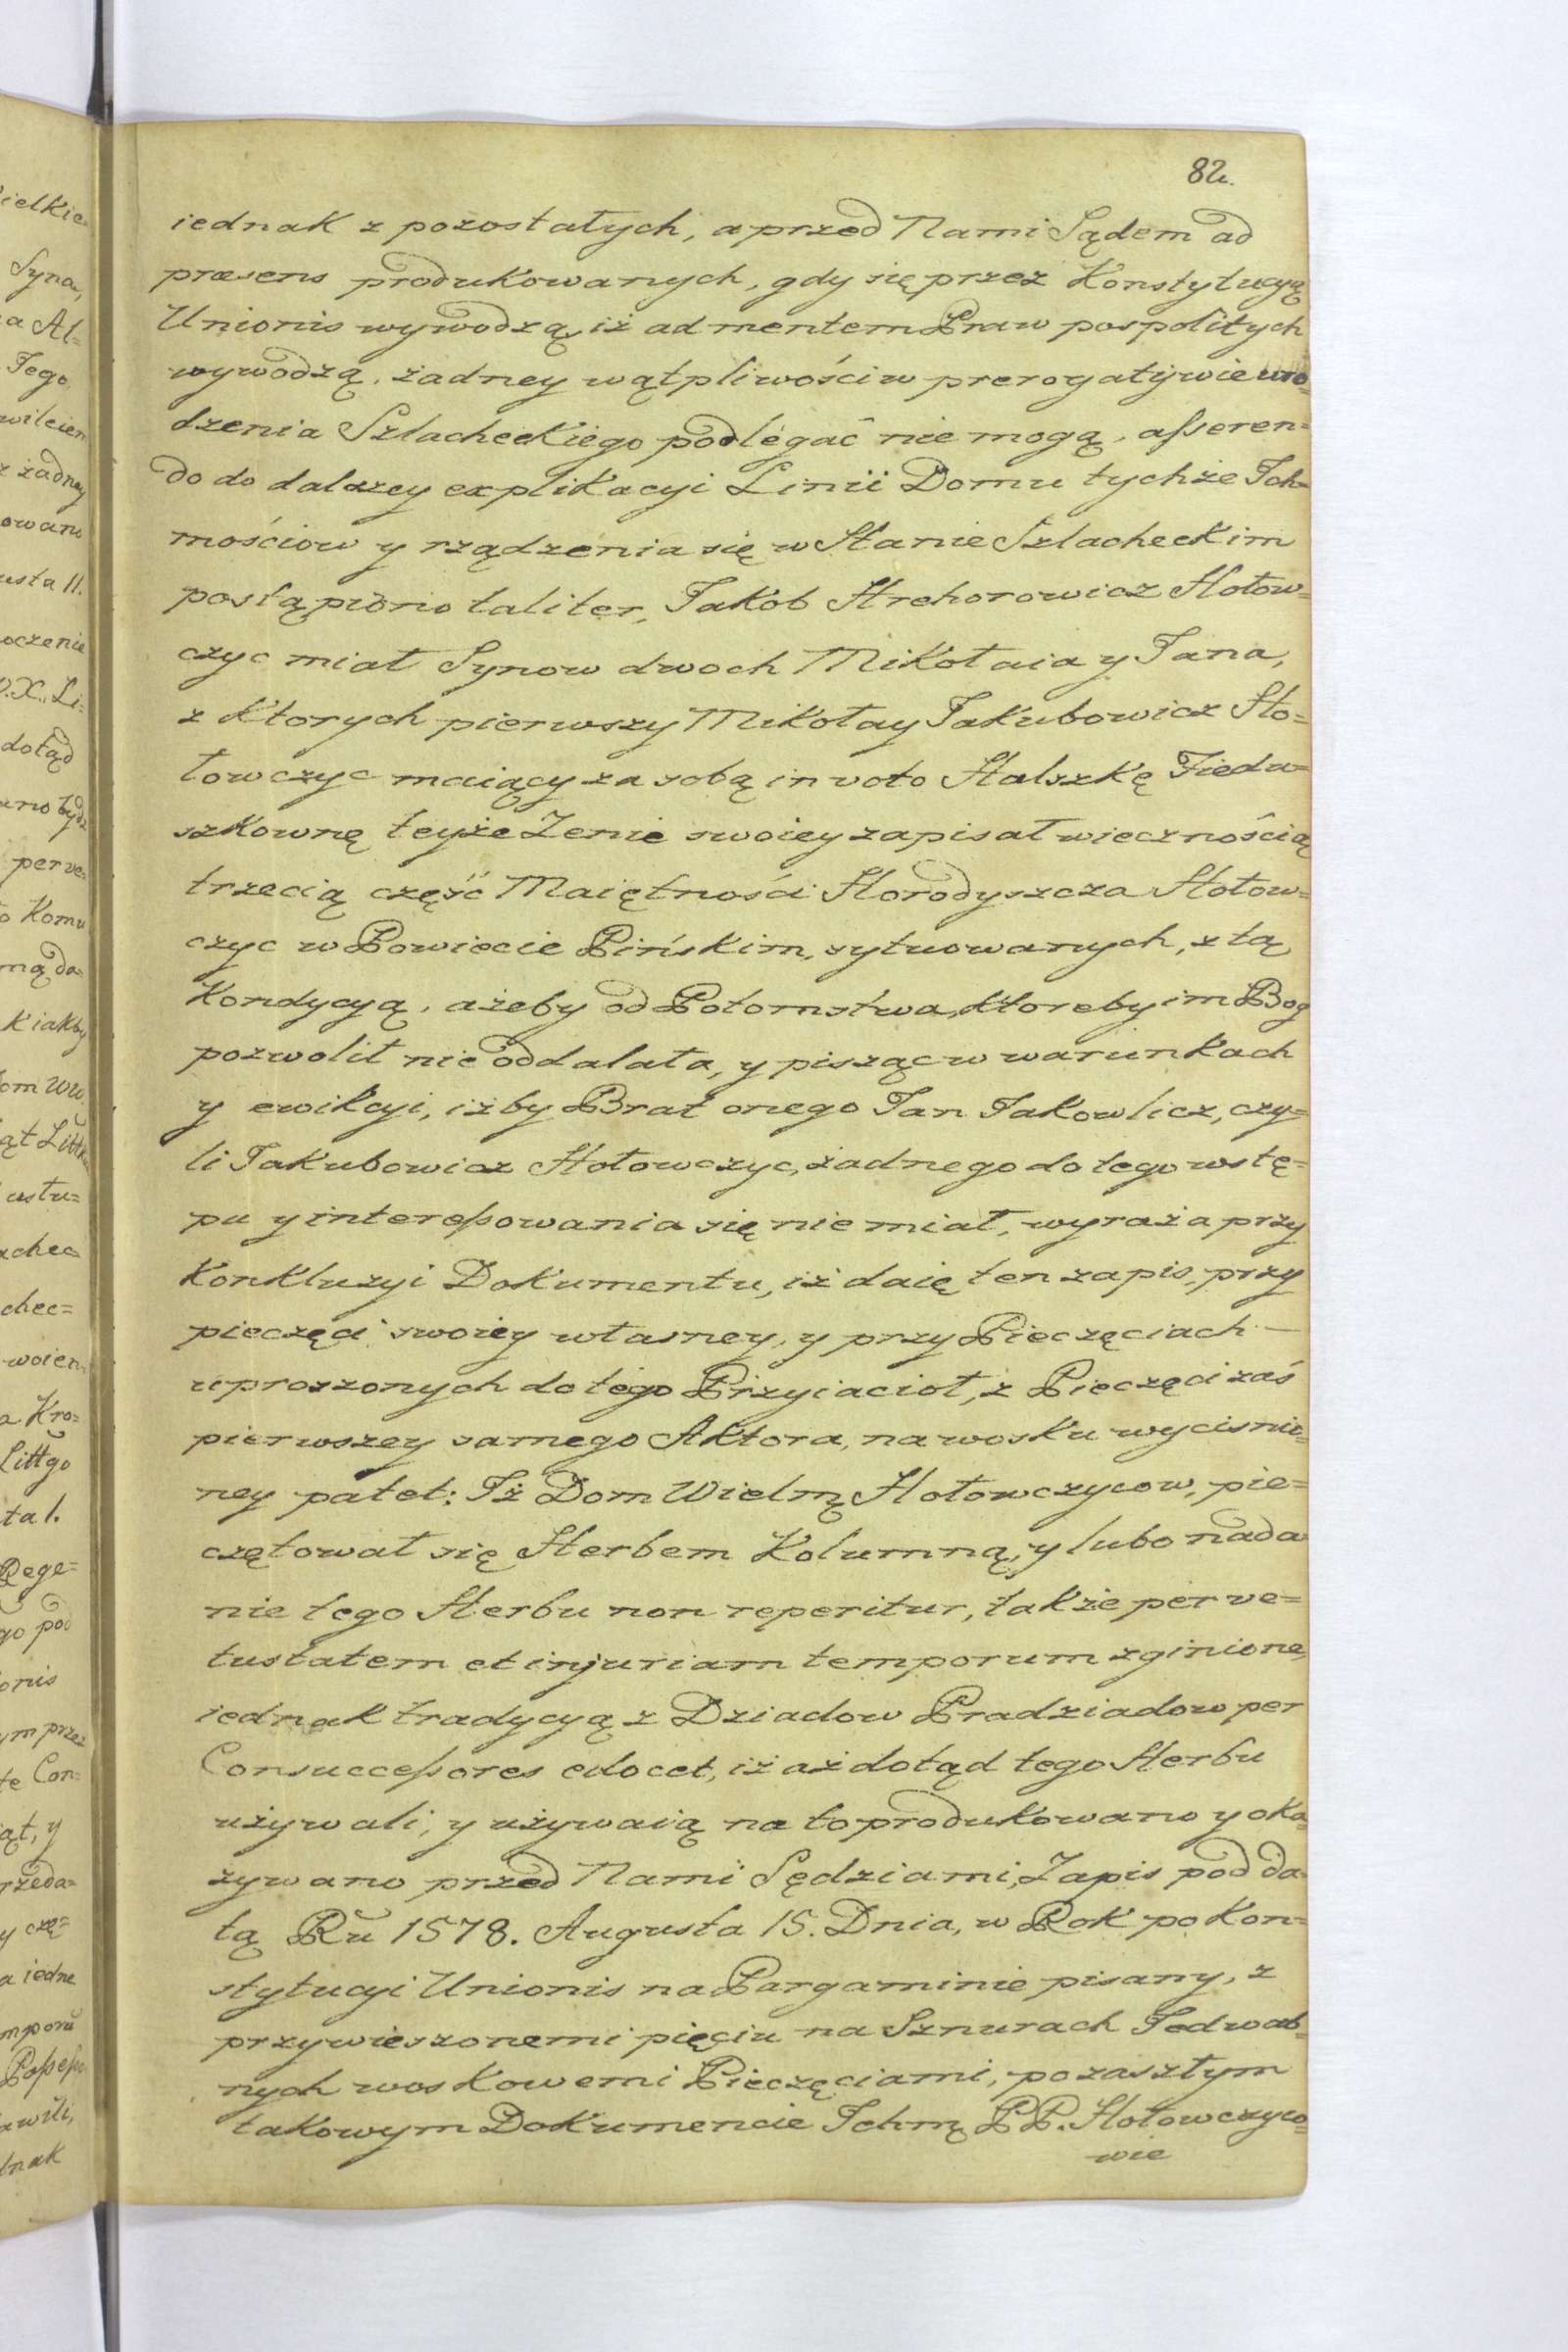 82.
iednak z pozostałych, a przed Nami Sądem ad
præsens produkowanych, gdy się przez Konstytucyą
Unionis wywodzą, iż ad mentem Praw pospolitych
wywodzą, żadney wątpliwości w prerogatywie uro=
dzenia Szlacheckiego podlegać nie mogą, asseren=
do do dalszey explikacyi Linii Domu tychże Ich=
mościow y rządzenia się w Stanie Szlacheckim
postąpiono taliter, Jakób Hrehorowicz Hołow=
czyc miał Synow dwoch Mikołaia y Jana,
z ktorych pierwszy Mikołay Jakubowicz Ho=
łowczyc maiący za sobą in voto Halszkę Fiedu=
szkownę teyże Żenie swoiey zapisał wiecznością
trzecią część Maiętności Horodyszcza Hołow=
czyc w Powiecie Pińskim, sytuowanych, z tą
Kondycyą, ażeby od Potomstwa, ktoreby im Bog
pozwolił nie oddalała, y pisząc w warunkach
y ewikcyi, iżby Brat onego Jan Jakowlicz, czy=
li Jakubowicz Hołowczyc, żadnego do tego wstę=
pu y interessowania się nie miał, wyraża przy
Konkluzyi Dokumentu, iż daię ten zapis, przy
pieczęci swoiey własney, y przy Pieczęciach —
uproszonych do tego Przyiacioł, z Pieczęci zaś
pierwszey samego Aktora, na wosku wycisnio=
ney patet: Iż Dom Wielmą Hołowczycow, pie=
czętował się Herbem Kolumną, y lubo nada
nie tego Herbu non reperitur, także per ve=
tustatem et injuriam temporum zginione,
iednak tradycyą z Dziadow Pradziadow per
Consuccessores edocet, iż aż dotąd tego Herbu
używali, y używaią na to produkowano y oka
zywano przed Nami Sędziami, Zapis pod da=
tą Ru 1578. Augusta 15. Dnia, w Rok po Kon=
stytucyi Unionis na Pargaminie pisany, z
przywieszonemi pięciu na Sznurach Jedwab=
nych woskowemi Pieczęciami, po zaszłym
takowym Dokumencie Ichmą PP. Hołowczyco=
wie